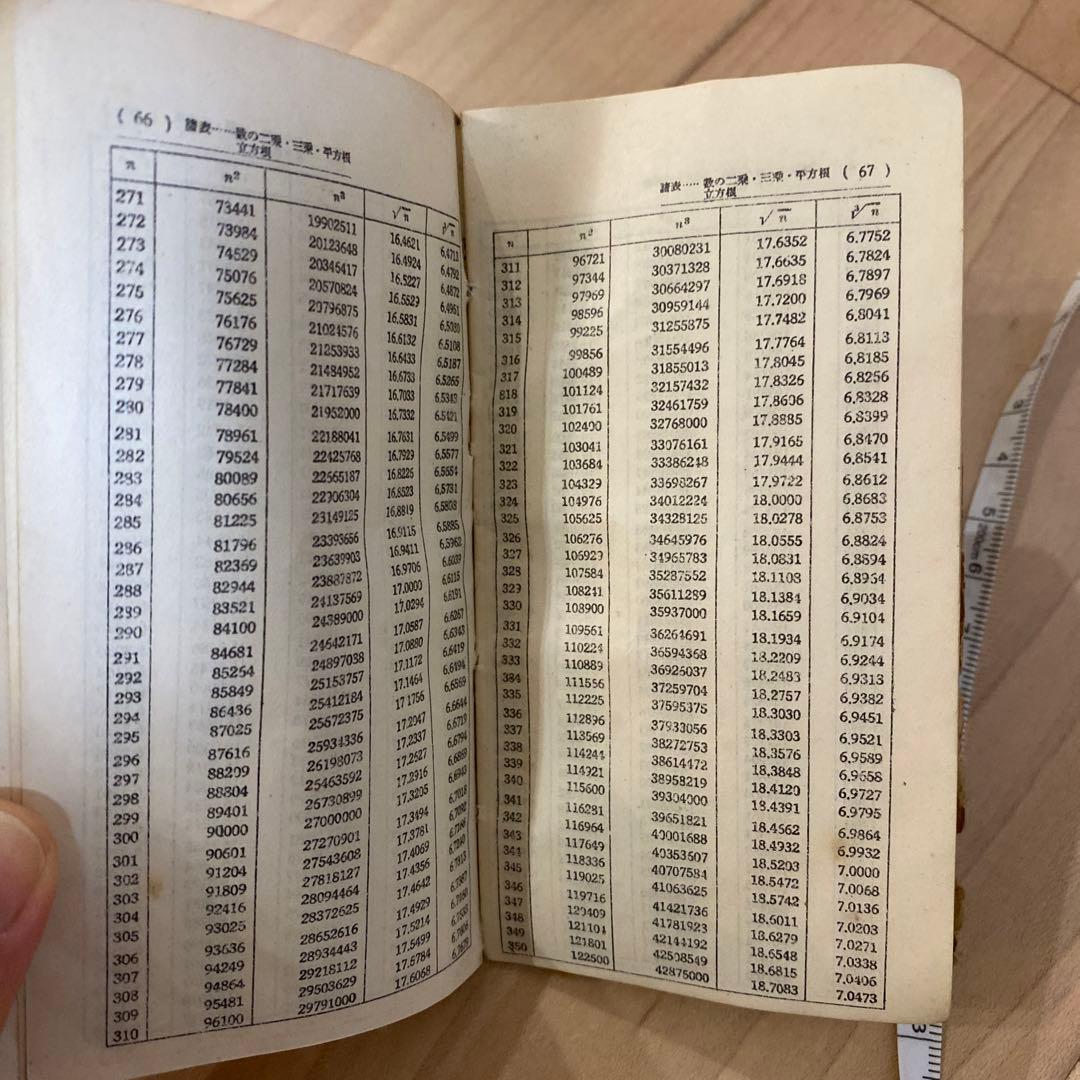 ( 66 ) 諸表……数の二乗・三乗・平方根
立方根
n n² n³ √n ∛n
271 73441 19902511 16.4621 6.4713
272 73984 20123648 16.4924 6.4792
273 74529 20346417 16.5227 6.4872
274 75076 20570824 16.5529 6.4951
275 75625 20796875 16.5831 6.5030
276 76176 21024576 16.6132 6.5108
277 76729 21253933 16.6433 6.5187
278 77284 21484952 16.6733 6.5265
279 77841 21717639 16.7033 6.5343
280 78400 21952000 16.7332 6.5421
281 78961 22188041 16.7631 6.5499
282 79524 22425768 16.7929 6.5577
283 80089 22665187 16.8226 6.5654
284 80656 22906304 16.8523 6.5731
285 81225 23149125 16.8819 6.5808
286 81796 23393656 16.9115 6.5885
287 82369 23639903 16.9411 6.5962
288 82944 23887872 16.9706 6.6039
289 83521 24137569 17.0000 6.6115
290 84100 24389000 17.0294 6.6191
291 84681 24642171 17.0587 6.6267
292 85264 24897088 17.0880 6.6343
293 85849 25153757 17.1172 6.6419
294 86436 25412184 17.1464 6.6494
295 87025 25672375 17.1756 6.6569
296 87616 25934336 17.2047 6.6644
297 88209 26198073 17.2337 6.6719
298 88804 26463592 17.2627 6.6794
299 89401 26730899 17.2916 6.6869
300 90000 27000000 17.3205 6.6943
301 90601 27270901 17.3494 6.7018
302 91204 27543608 17.3781 6.7092
303 91809 27818127 17.4069 6.7166
304 92416 28094464 17.4356 6.7240
305 93025 28372625 17.4642 6.7313
306 93636 28652616 17.4929 6.7387
307 94249 28934443 17.5214 6.7460
308 94864 29218112 17.5499 6.7533
309 95481 29503629 17.5784 6.7606
310 96100 29791000 17.6068 6.7679
諸表……数の二乗・三乗・平方根 ( 67 )
立方根
n n² n³ √n ∛n
311 96721 30080231 17.6352 6.7752
312 97344 30371328 17.6635 6.7824
313 97969 30664297 17.6918 6.7897
314 98596 30959144 17.7200 6.7969
315 99225 31255875 17.7482 6.8041
316 99856 31554496 17.7764 6.8113
317 100489 31855013 17.8045 6.8185
318 101124 32157432 17.8326 6.8256
319 101761 32461759 17.8606 6.8328
320 102400 32768000 17.8885 6.8399
321 103041 33076161 17.9165 6.8470
322 103684 33386248 17.9444 6.8541
323 104329 33698267 17.9722 6.8612
324 104976 34012224 18.0000 6.8683
325 105625 34328125 18.0278 6.8753
326 106276 34645976 18.0555 6.8824
327 106929 34965783 18.0831 6.8894
328 107584 35287552 18.1108 6.8964
329 108241 35611289 18.1384 6.9034
330 108900 35937000 18.1659 6.9104
331 109561 36264691 18.1934 6.9174
332 110224 36594368 18.2209 6.9244
333 110889 36926037 18.2483 6.9313
334 111556 37259704 18.2757 6.9382
335 112225 37595375 18.3030 6.9451
336 112896 37933056 18.3303 6.9521
337 113569 38272753 18.3576 6.9589
338 114244 38614472 18.3848 6.9658
339 114921 38958219 18.4120 6.9727
340 115600 39304000 18.4391 6.9795
341 116281 39651821 18.4662 6.9864
342 116964 40001688 18.4932 6.9932
343 117649 40353607 18.5203 7.0000
344 118336 40707584 18.5472 7.0068
345 119025 41063625 18.5742 7.0136
346 119716 41421736 18.6011 7.0203
347 120409 41781923 18.6279 7.0271
348 121104 42144192 18.6548 7.0338
349 121801 42508549 18.6815 7.0406
350 122500 42875000 18.7083 7.0473
3
4
5
200cm
6